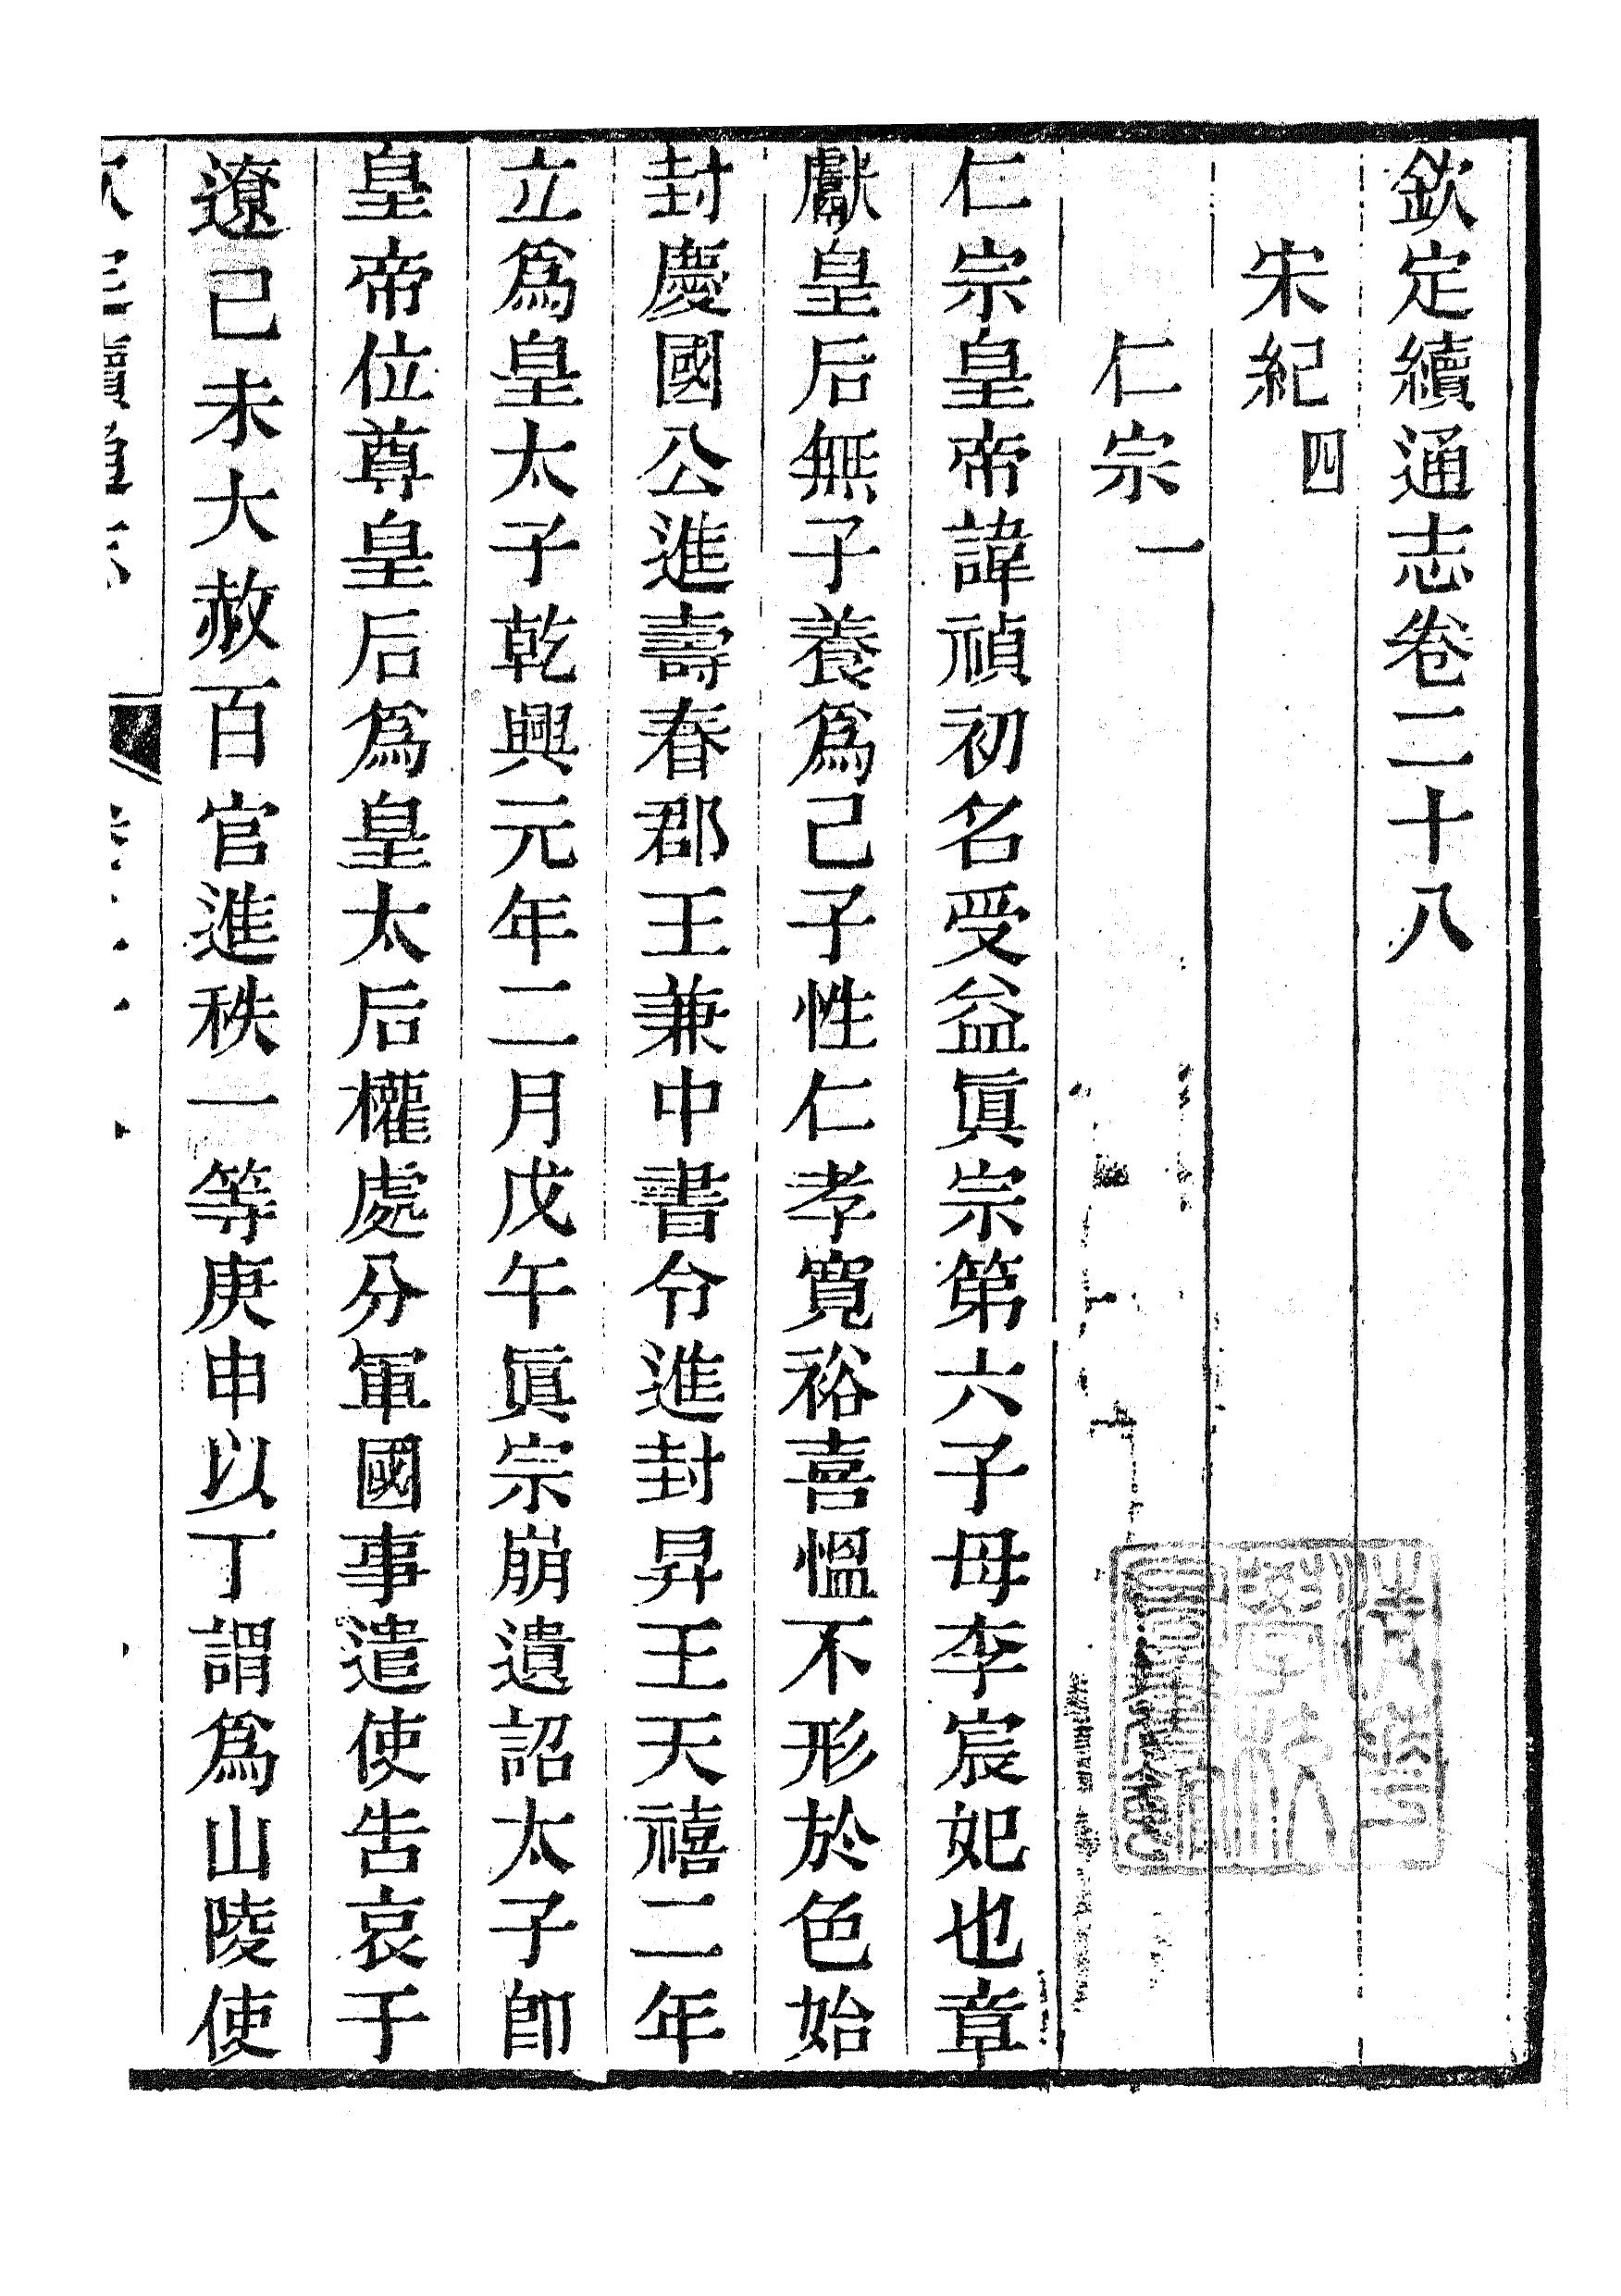 欽定續通志卷二十八
宋紀四
仁宗一
仁宗皇帝諱禎初名受益眞宗第六子母李宸妃也章
獻皇后無子養爲己子性仁孝寬裕喜慍不形於色始
封慶國公進壽春郡王兼中書令進封昇王天禧二年
立爲皇太子乾興元年二月戊午眞宗崩遺詔太子卽
皇帝位尊皇后爲皇太后權處分軍國事遣使告哀于
遼己未大赦百官進秩一等庚申以丁謂爲山陵使